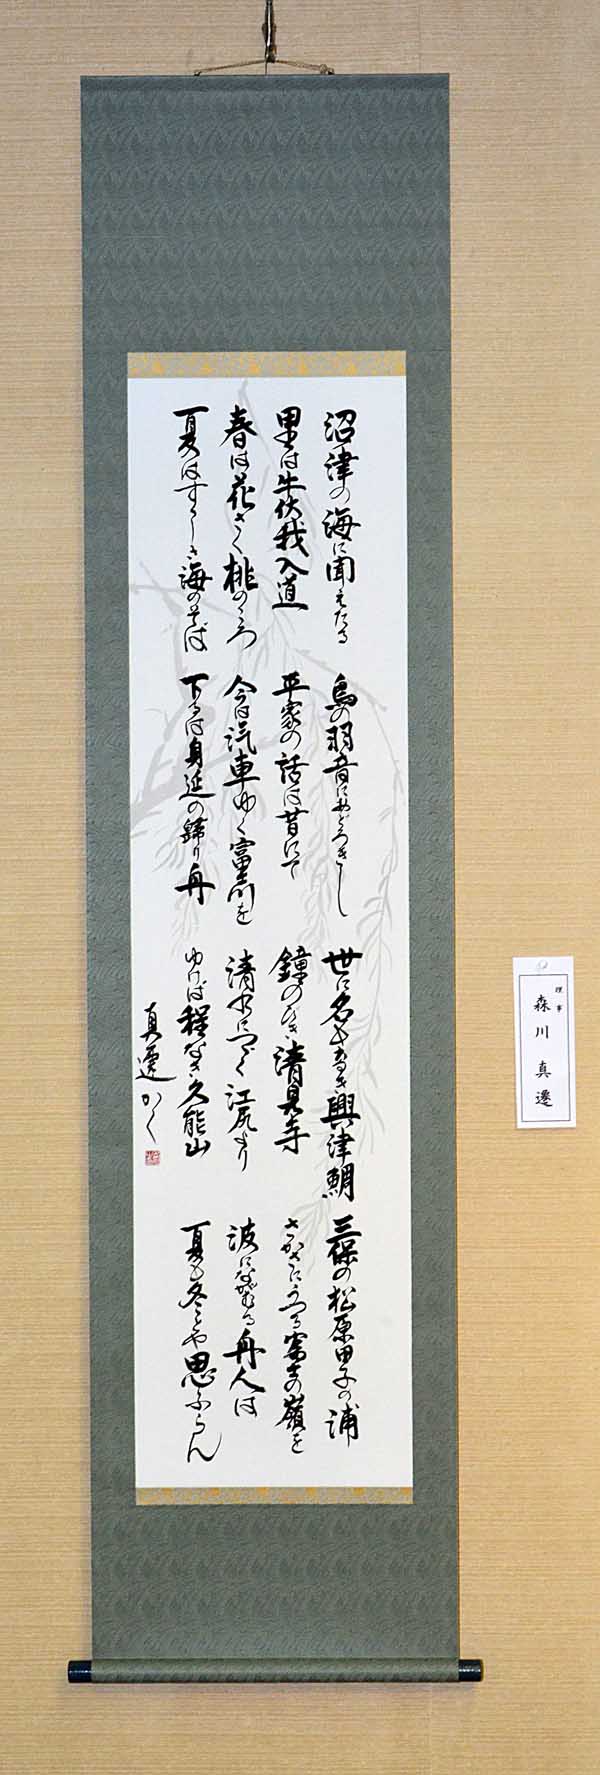 沼津の海に聞えたる
里は牛伏我入道
春は花さく桃のころ
夏はすゞしき海のそば
鳥の羽音におどろきし
平家の話は昔にて
今は汽車ゆく富士川を
下るは身延の歸り舟
世に名も高き興津鯛
鐘のひゞき清見寺
清水につゞく江尻より
ゆけば程なき久能山
三保の松原田子の浦
さかさにうつる富士の嶺を
波にながむる舟人は
夏も冬とや思ふらん
真遷かく
理事
森川真遷